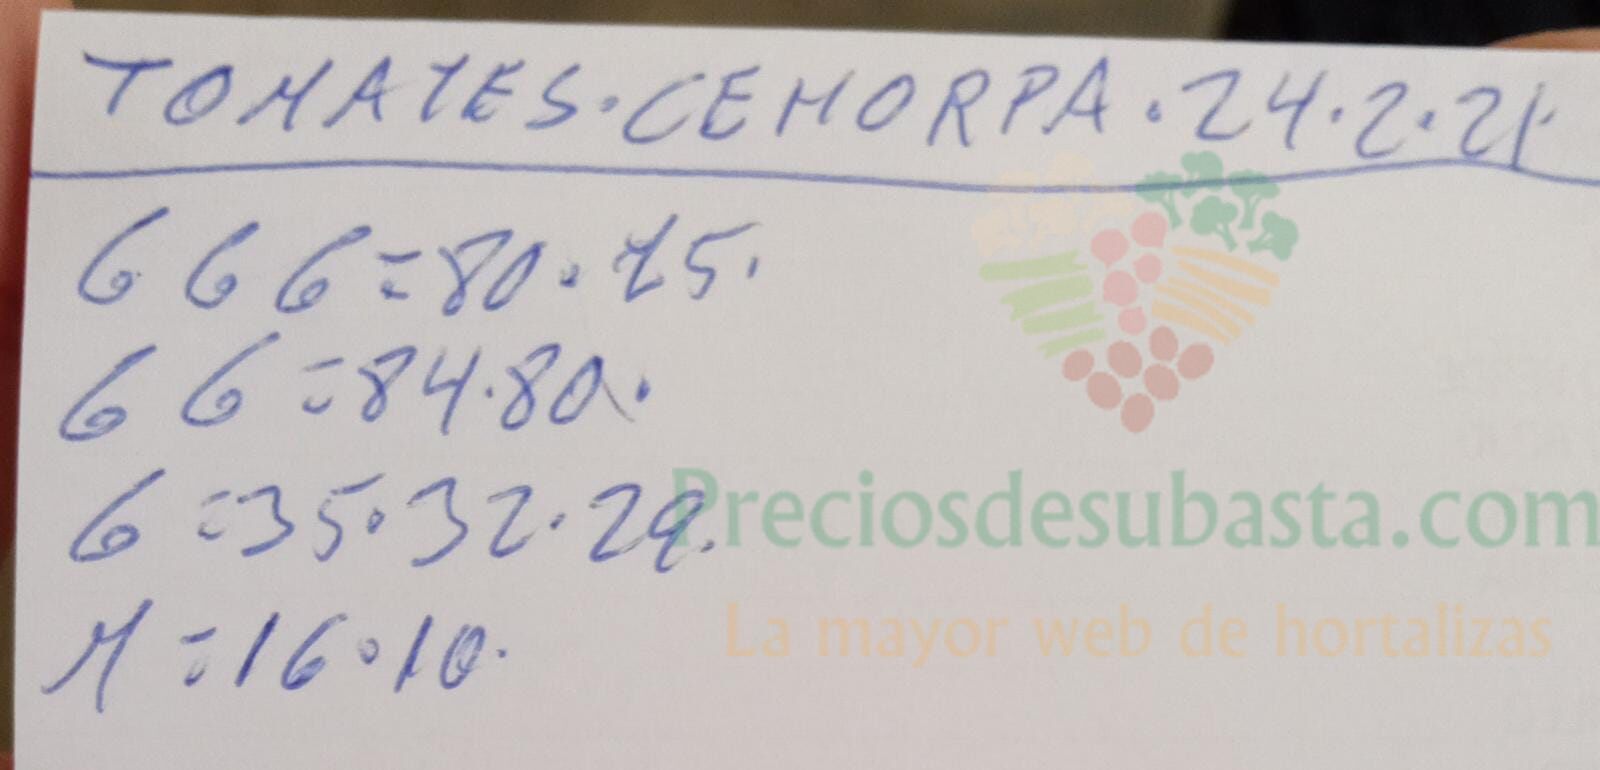 TOMATES.CEHORPA.24.2.21.
G G G=80.75.
G G=84.80.
G=35.32.29.
M=16.10.
Preciosdesubasta.com
La mayor web de hortalizas